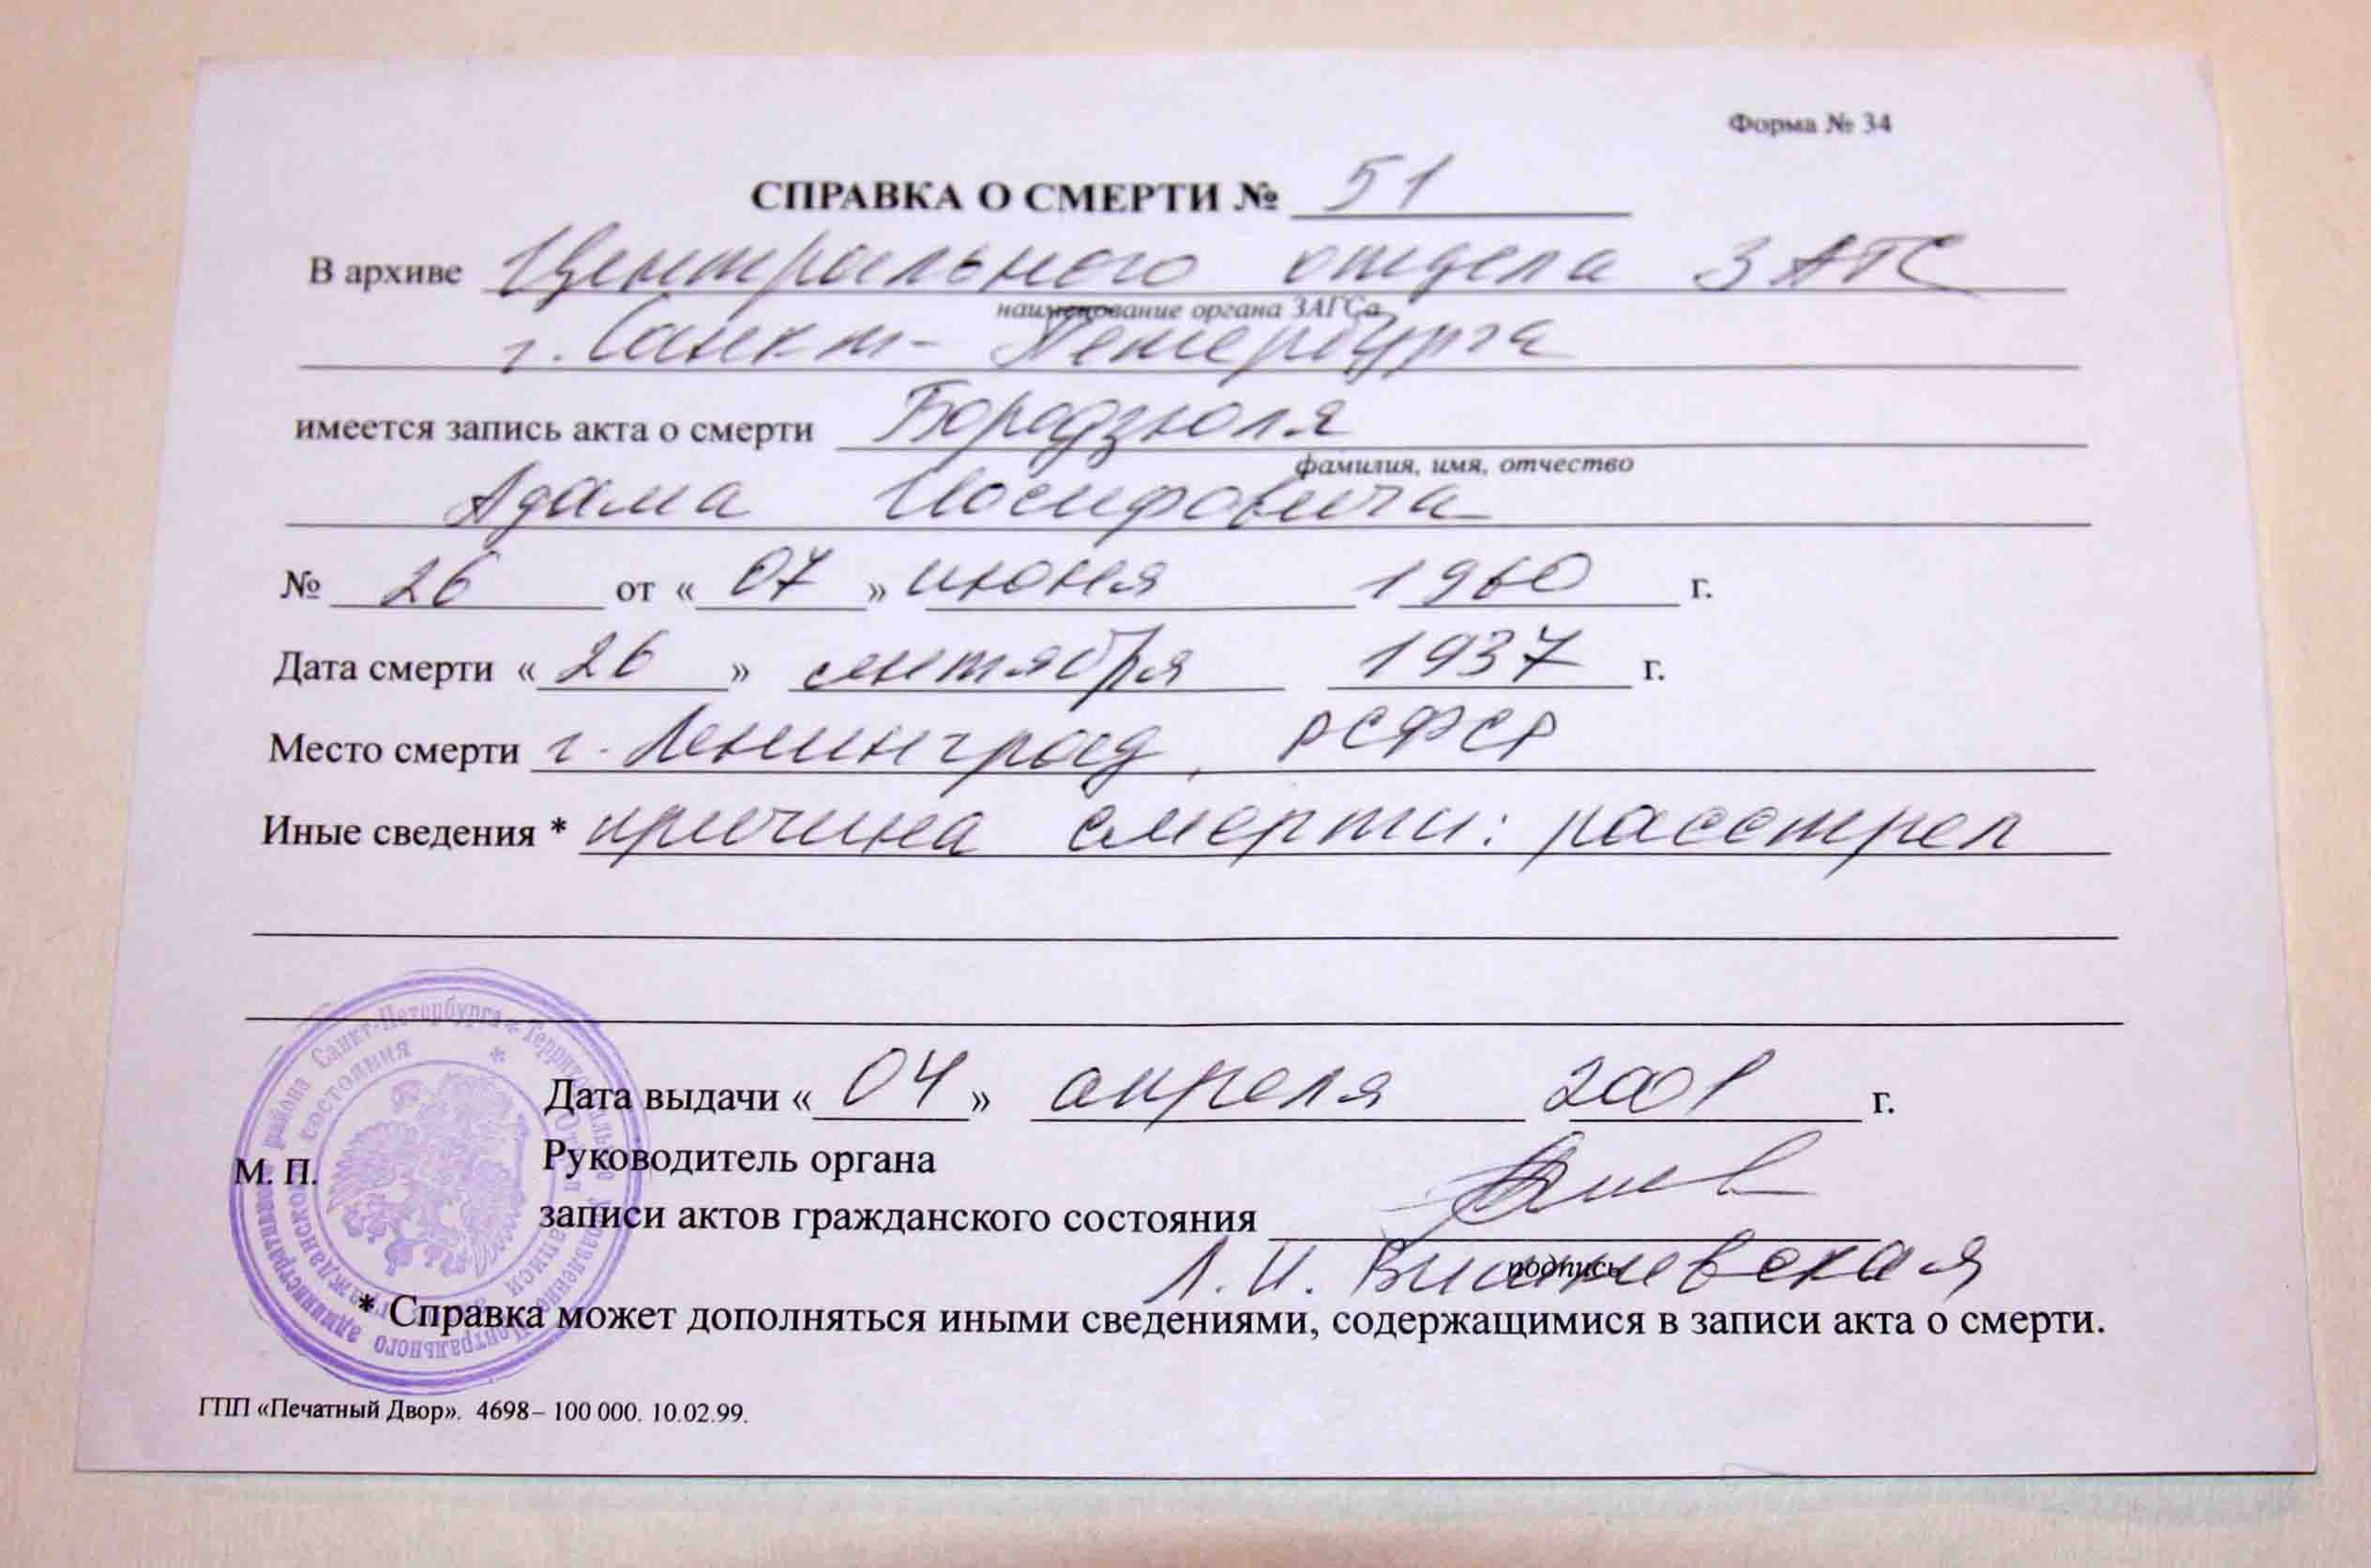 Форма № 34
СПРАВКА О СМЕРТИ № 51
В архиве Центрального отдела ЗАГС
наименование органа ЗАГСа
г. Санкт-Петербурга
имеется запись акта о смерти Бородзюля
фамилия, имя, отчество
Адама Иосифовича
№ 26 от « 07 » июня 1960 г.
Дата смерти « 26 » сентября 1937 г.
Место смерти г. Ленинград, РСФСР
Иные сведения * причина смерти: расстрел
Дата выдачи « 04 » апреля 2001 г.
М. П.
Руководитель органа
записи актов гражданского состояния
подпись
Л. И. Вишневская
* Справка может дополняться иными сведениями, содержащимися в записи акта о смерти.
ГПП «Печатный Двор». 4698– 100 000. 10.02.99.
района Санкт-Петербурга
состояния